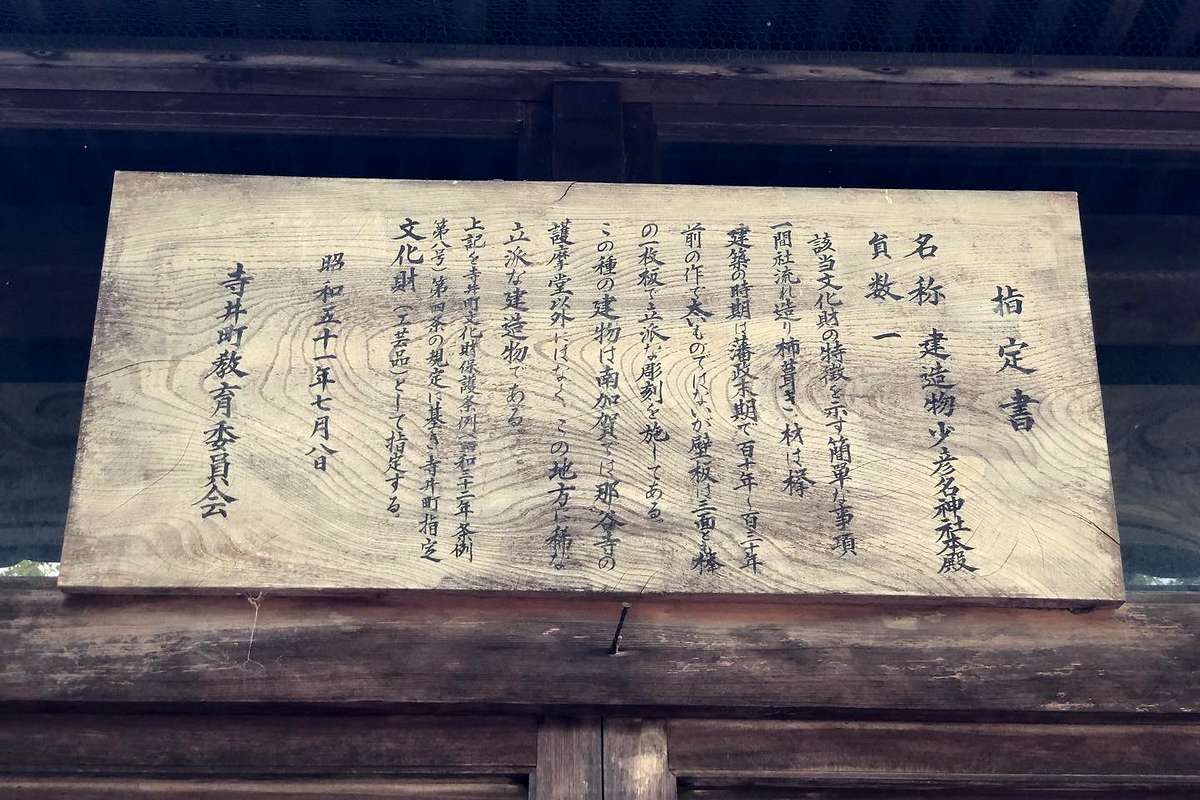 指定書
名称 建造物少彦名神社本殿
員数 一
該当文化財の特徴を示す簡単な事項
一間社流れ造り柿葺きで材は欅
建築の時期は藩政末期で百十年〜百三十年
前の作で太いものではないが壁板は三面とも欅
の一枚板で立派な彫刻を施してある。
この種の建物は南加賀では那谷寺の
護摩堂以外にはなく、この地方に稀な
立派な建造物である。
上記を寺井町文化財保護条例(昭和三十二年条例
第八号)第四条の規定に基き寺井町指定
文化財(工芸品)として指定する
昭和五十一年七月八日
寺井町教育委員会